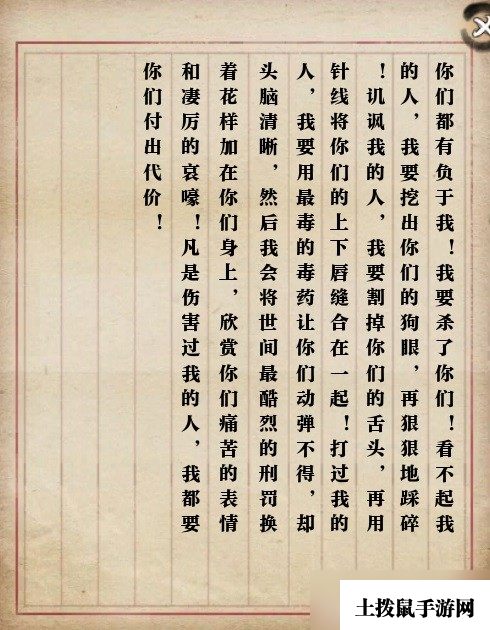 你们都有负于我！我要杀了你们！看不起我
的人，我要挖出你们的狗眼，再狠狠地踩碎
！讥讽我的人，我要割掉你们的舌头，再用
针线将你们的上下唇缝合在一起！打过我的
人，我要用最毒的毒药让你们动弹不得，却
头脑清晰，然后我会将世间最酷烈的刑罚换
着花样加在你们身上，欣赏你们痛苦的表情
和凄厉的哀嚎！凡是伤害过我的人，我都要
你们付出代价！
土拨鼠手游网